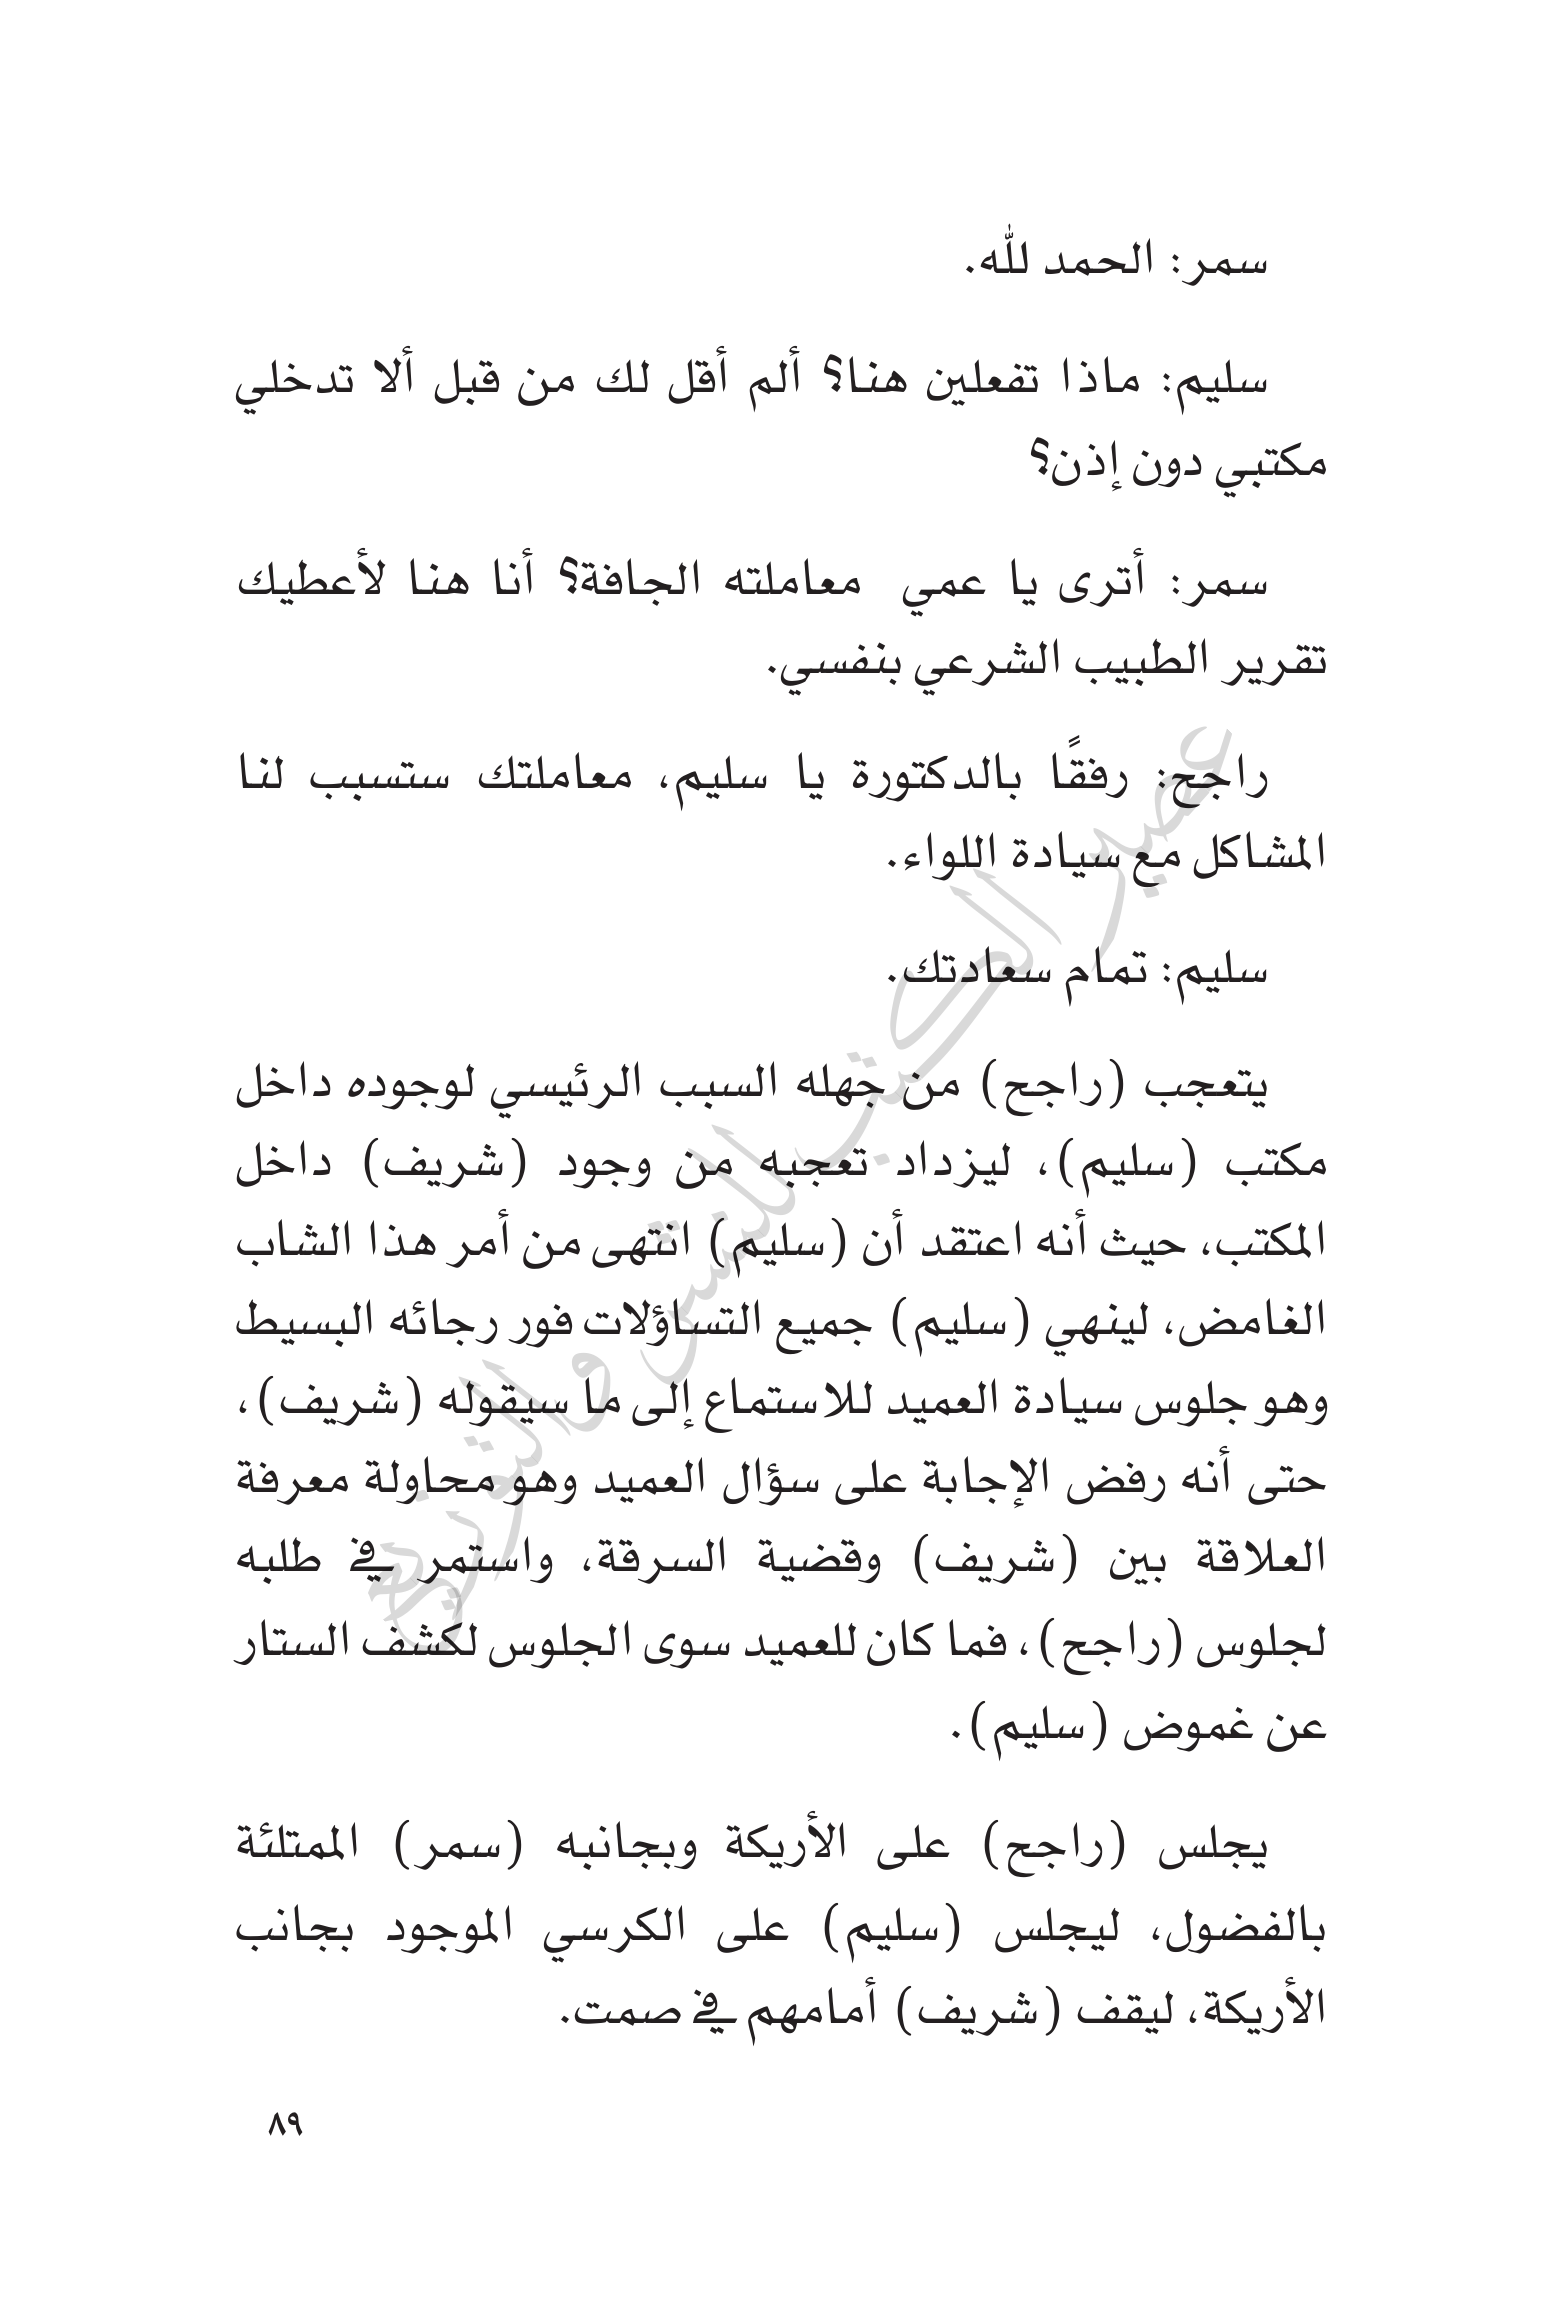 سمر: الحمد لله.
سليم: ماذا تفعلين هنا؟ ألم أقل لك من قبل ألا تدخلي
مكتبي دون إذن؟
سمر: أترى يا عمي معاملته الجافة؟ أنا هنا لأعطيك
تقرير الطبيب الشرعي بنفسي.
راجح: رفقًا بالدكتورة يا سليم، معاملتك ستسبب لنا
المشاكل مع سيادة اللواء.
سليم: تمام سعادتك.
يتعجب (راجح) من جهله السبب الرئيسي لوجوده داخل
مكتب (سليم)، ليزداد تعجبه من وجود (شريف) داخل
المكتب، حيث أنه اعتقد أن (سليم) انتهى من أمر هذا الشاب
الغامض، لينهي (سليم) جميع التساؤلات فور رجائه البسيط
وهو جلوس سيادة العميد للاستماع إلى ما سيقوله (شريف)،
حتى أنه رفض الإجابة على سؤال العميد وهو محاولة معرفة
العلاقة بين (شريف) وقضية السرقة، واستمر في طلبه
لجلوس (راجح)، فما كان للعميد سوى الجلوس لكشف الستار
عن غموض (سليم).
يجلس (راجح) على الأريكة وبجانبه (سمر) الممتلئة
بالفضول، ليجلس (سليم) على الكرسي الموجود بجانب
الأريكة، ليقف (شريف) أمامهم في صمت.
٨٩
عصير الكتب للنشر والتوزيع